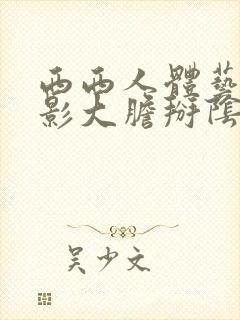 西西人體藝
影大膽掰陰
吴少文